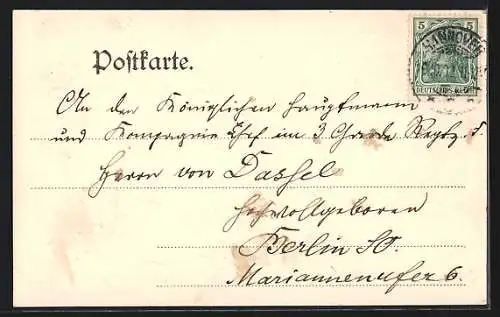 5 5
HANNOVER
DEUTSCHES REICH
Postkarte.
An den Königlichen Hauptmann
und Kompagnie Chef im 3 Garde Regt z. F.
Herrn von Dassel
Hochwollgeboren
Berlin SO.
Mariannenufer 6.